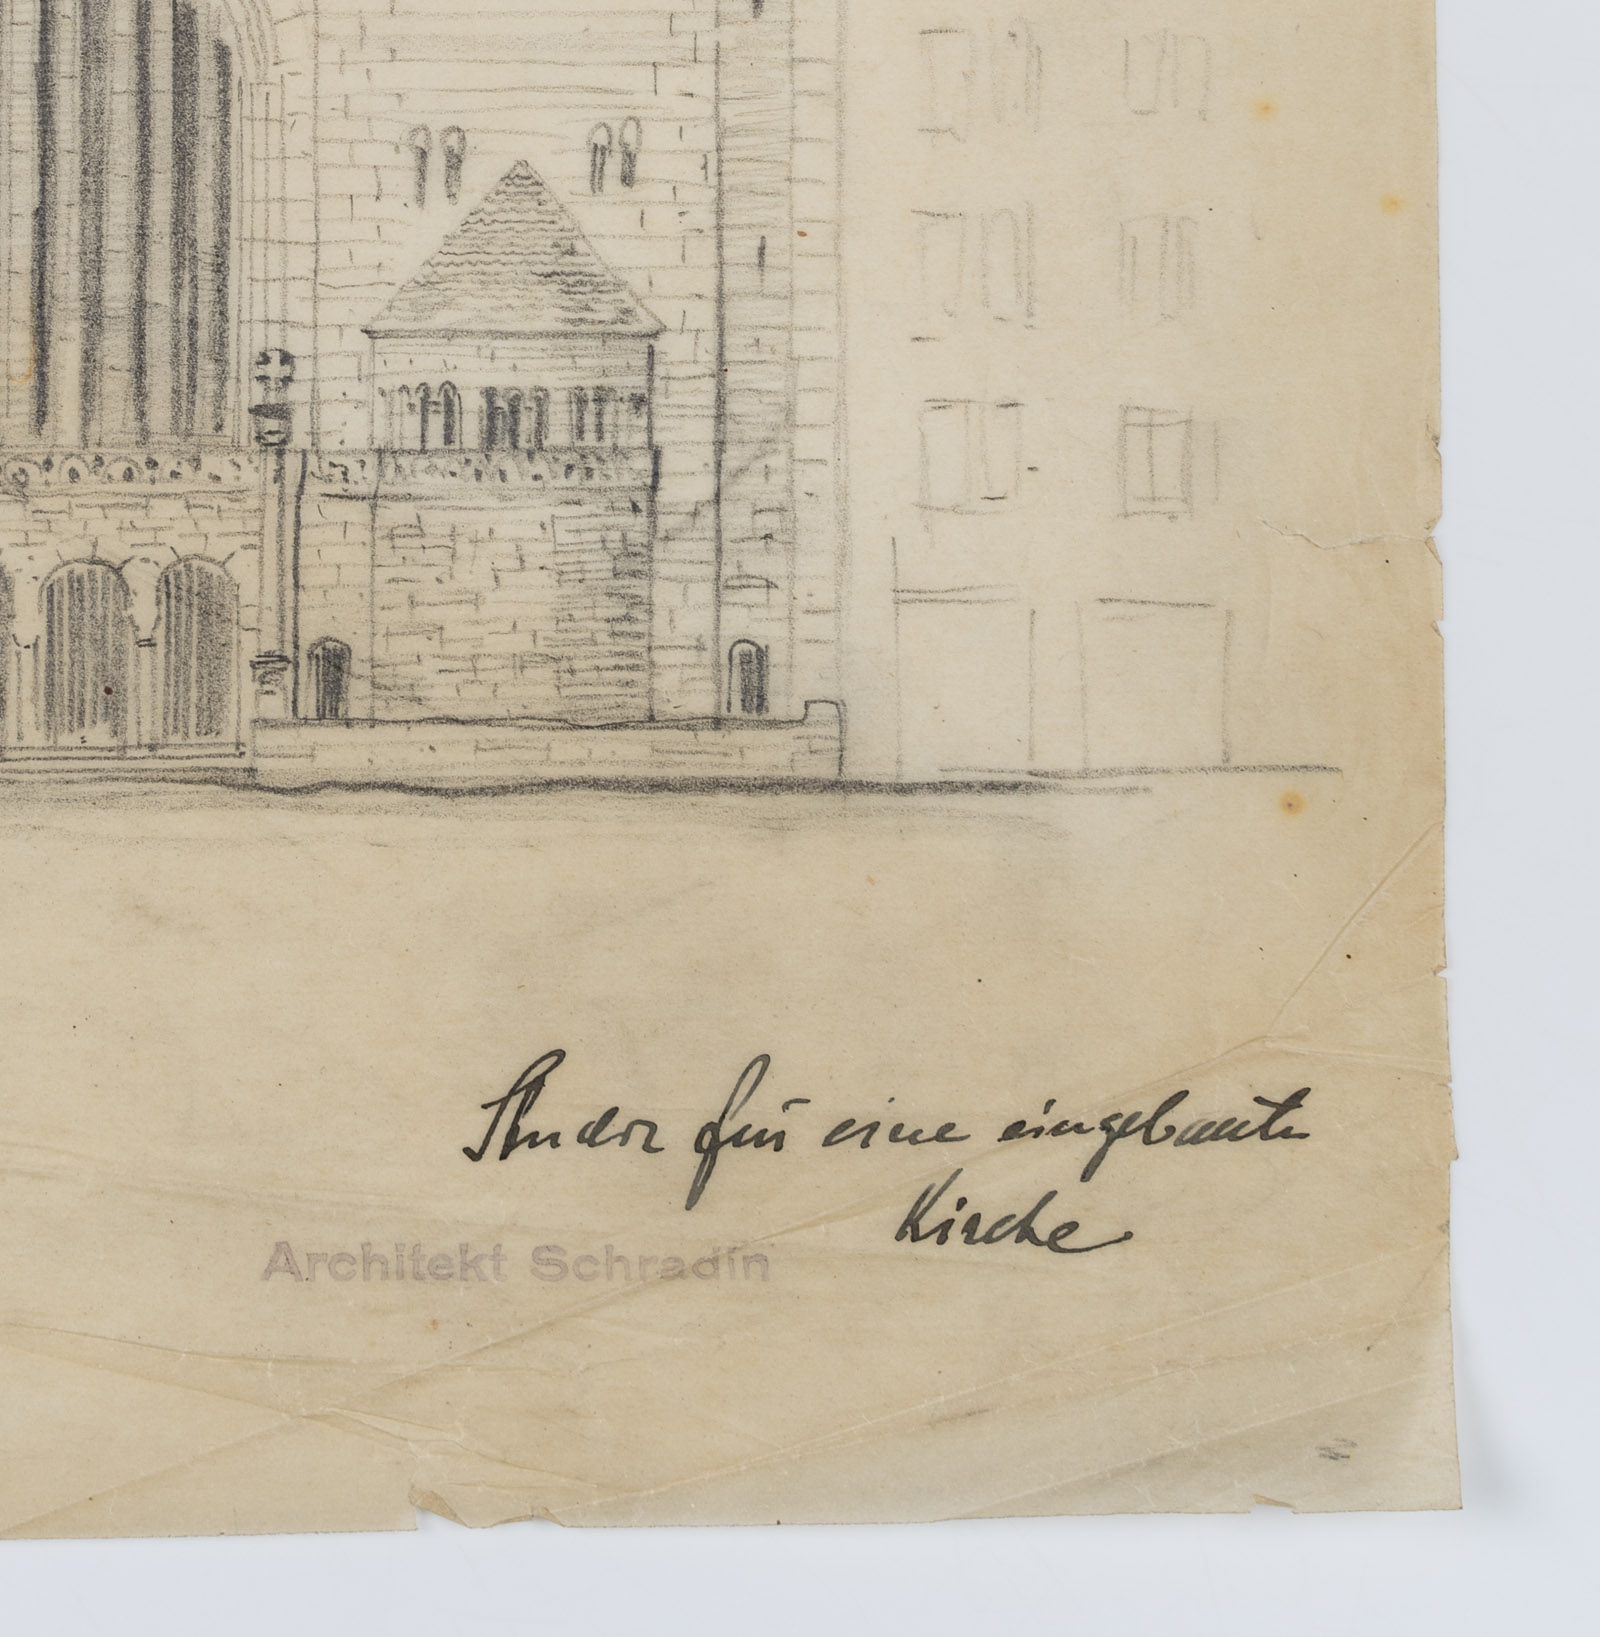 Studie für eine eingebaute
Kirche
Architekt Schradin